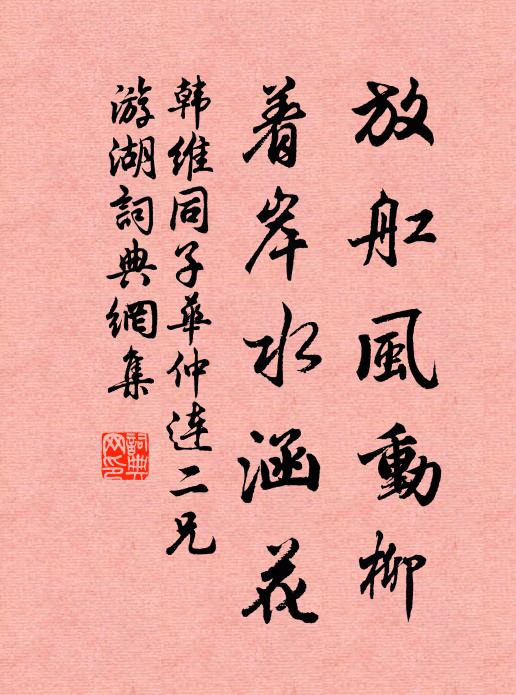 放舡風動柳
着岸水涵花
韩维同子華仲連二兄
游湖詞典網集
詞典網印